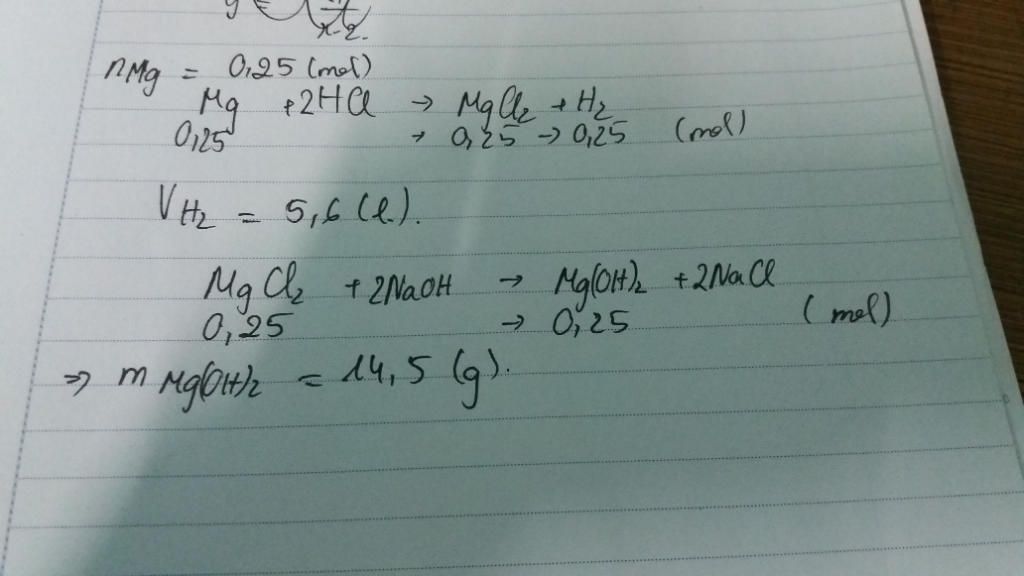 x-2.
nMg = 0,25 (mol)
Mg +2HCl → MgCl2 + H2
0,25 → 0,25 → 0,25 (mol)
VH2 = 5,6 (l).
MgCl2 + 2NaOH → Mg(OH)2 + 2NaCl
0,25 → 0,25 (mol)
⇒ m Mg(OH)2 = 14,5 (g).